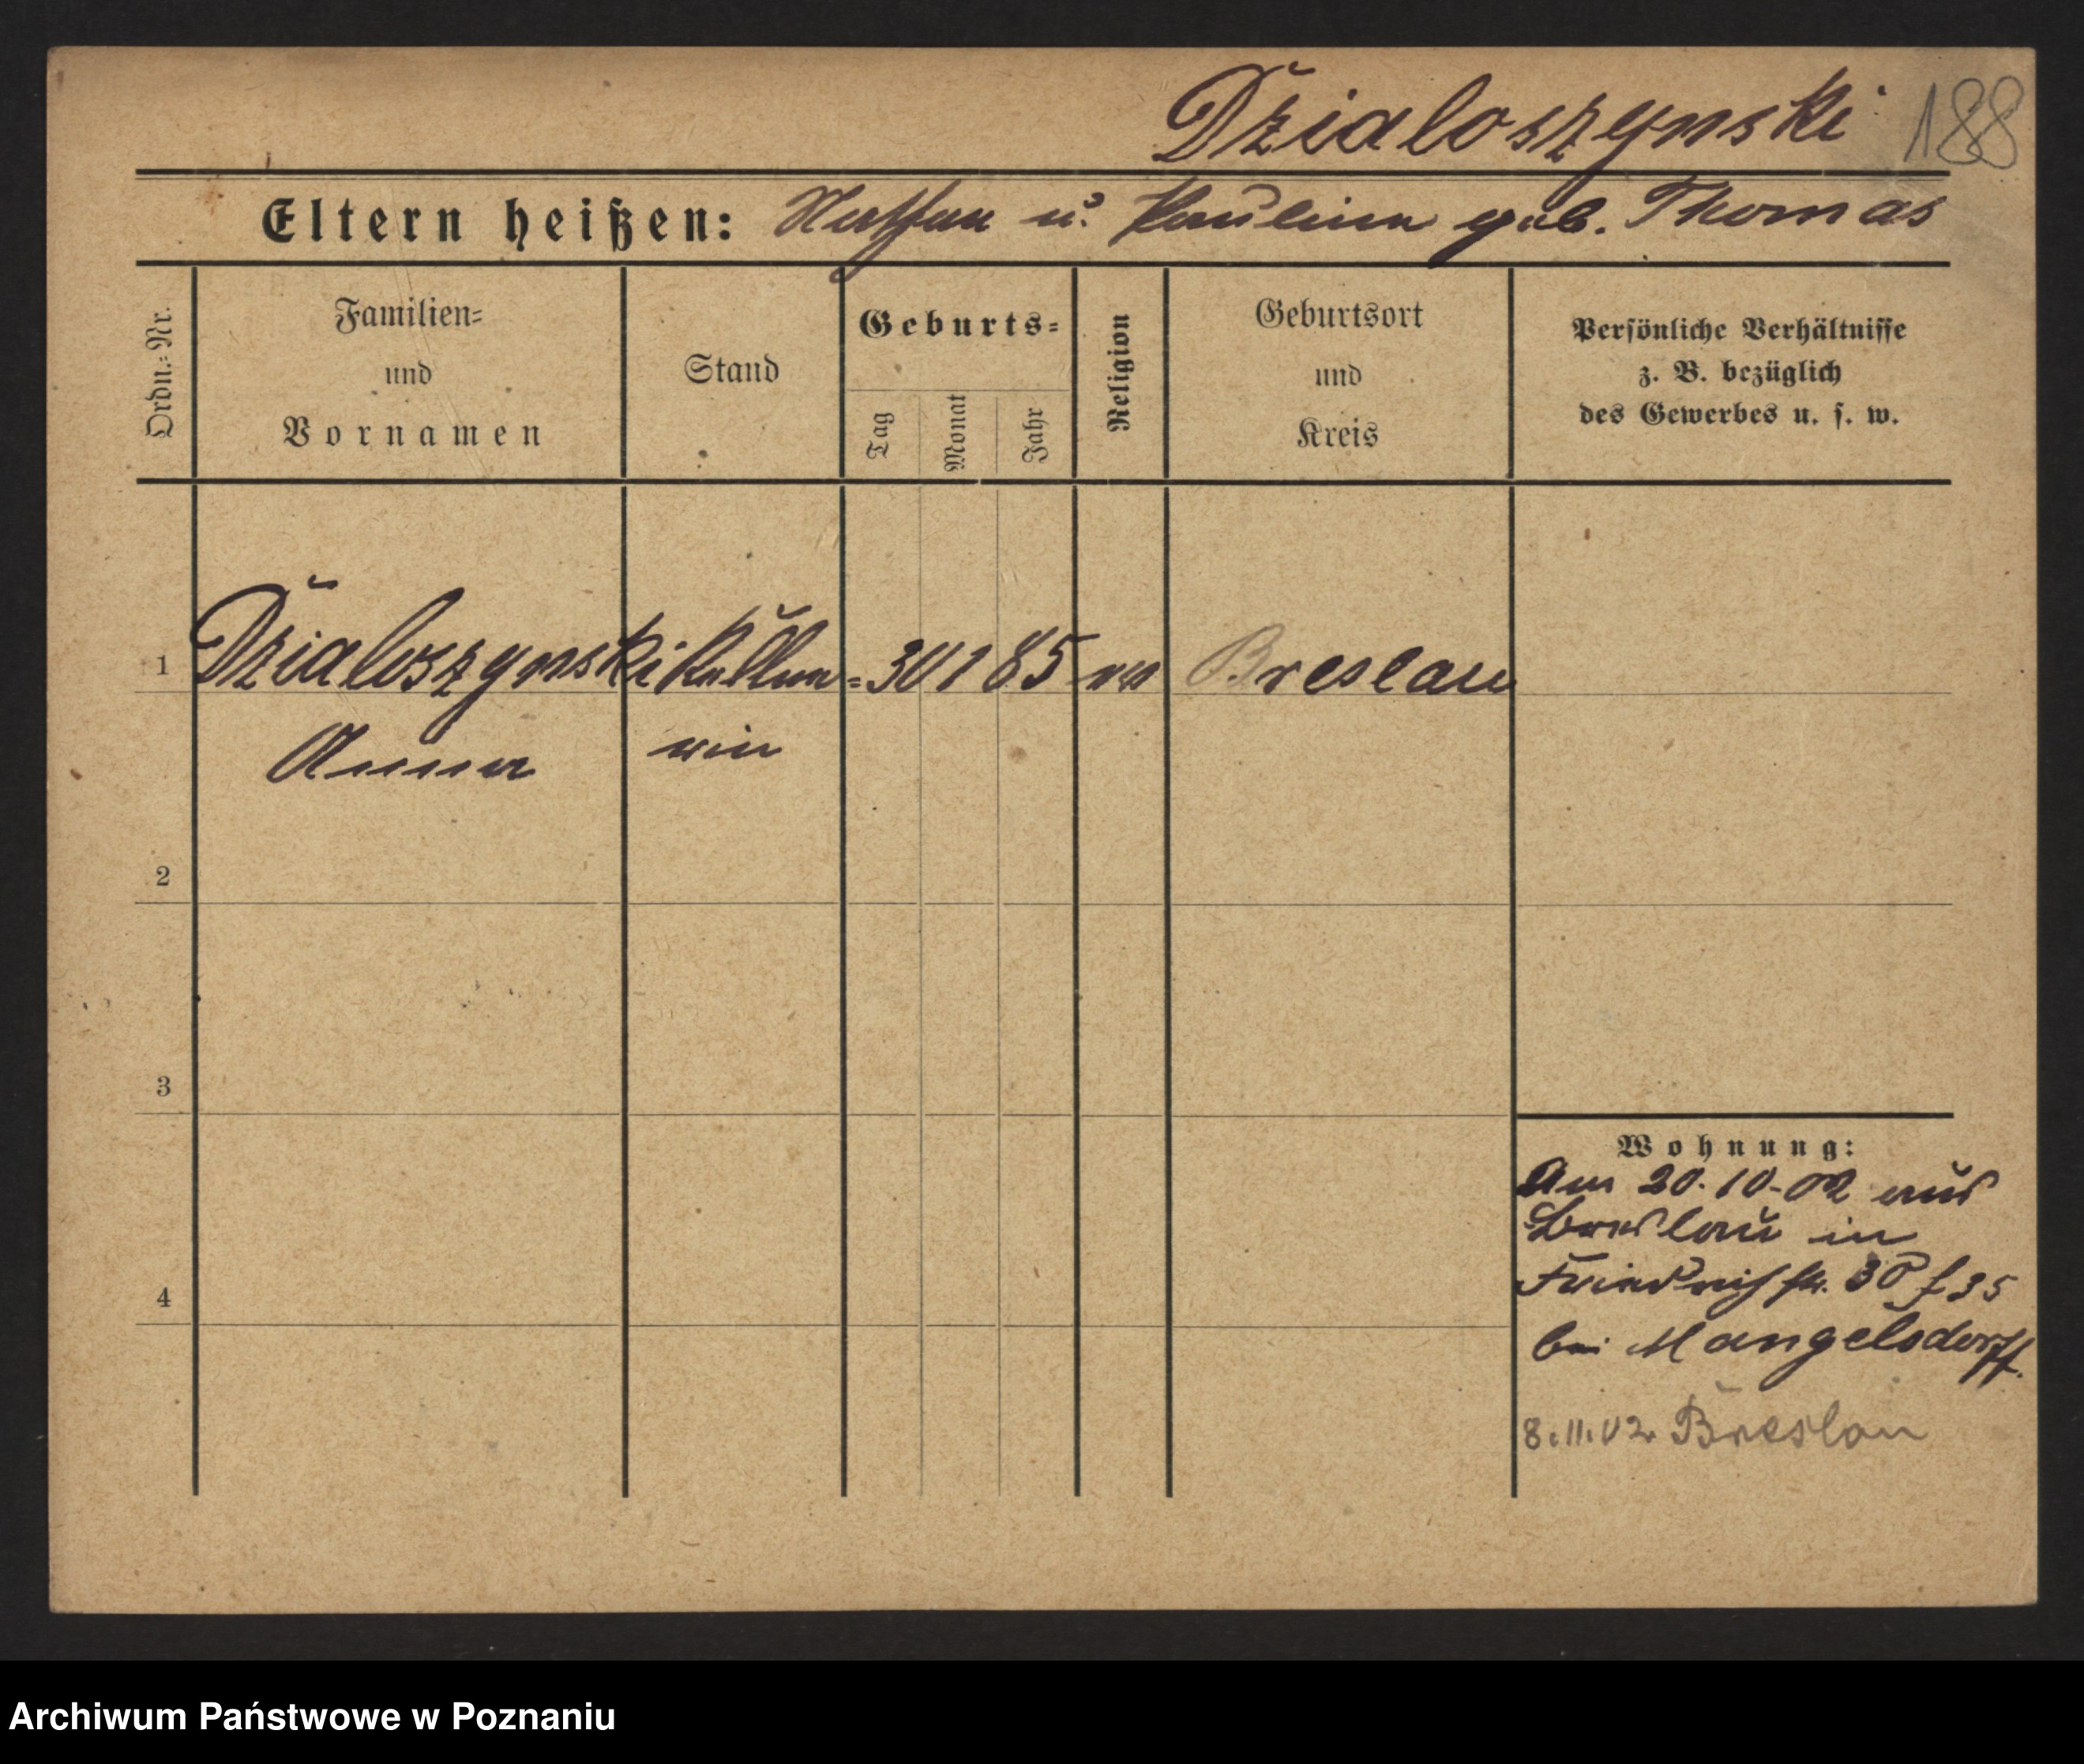 Dzialoszynski 188
Eltern heißen: Nathan u. Pauline geb. Thomas
Ordn.-Nr.
Familien-
und
Vornamen
Stand
Geburts-
Tag
Monat
Jahr
Religion
Geburtsort
und
Kreis
Persönliche Verhältnisse
z. B. bezüglich
des Gewerbes u. s. w.
1 Dzialoszynski Kellne- 30 1 85 Breslau
Anna rin
2
3
4
Wohnung:
Am 20.10.02 aus
Breslau in
Friedrichstr. 30 35
bei Mangelsdorff.
8.11.02. Breslau
Archiwum Państwowe w Poznaniu